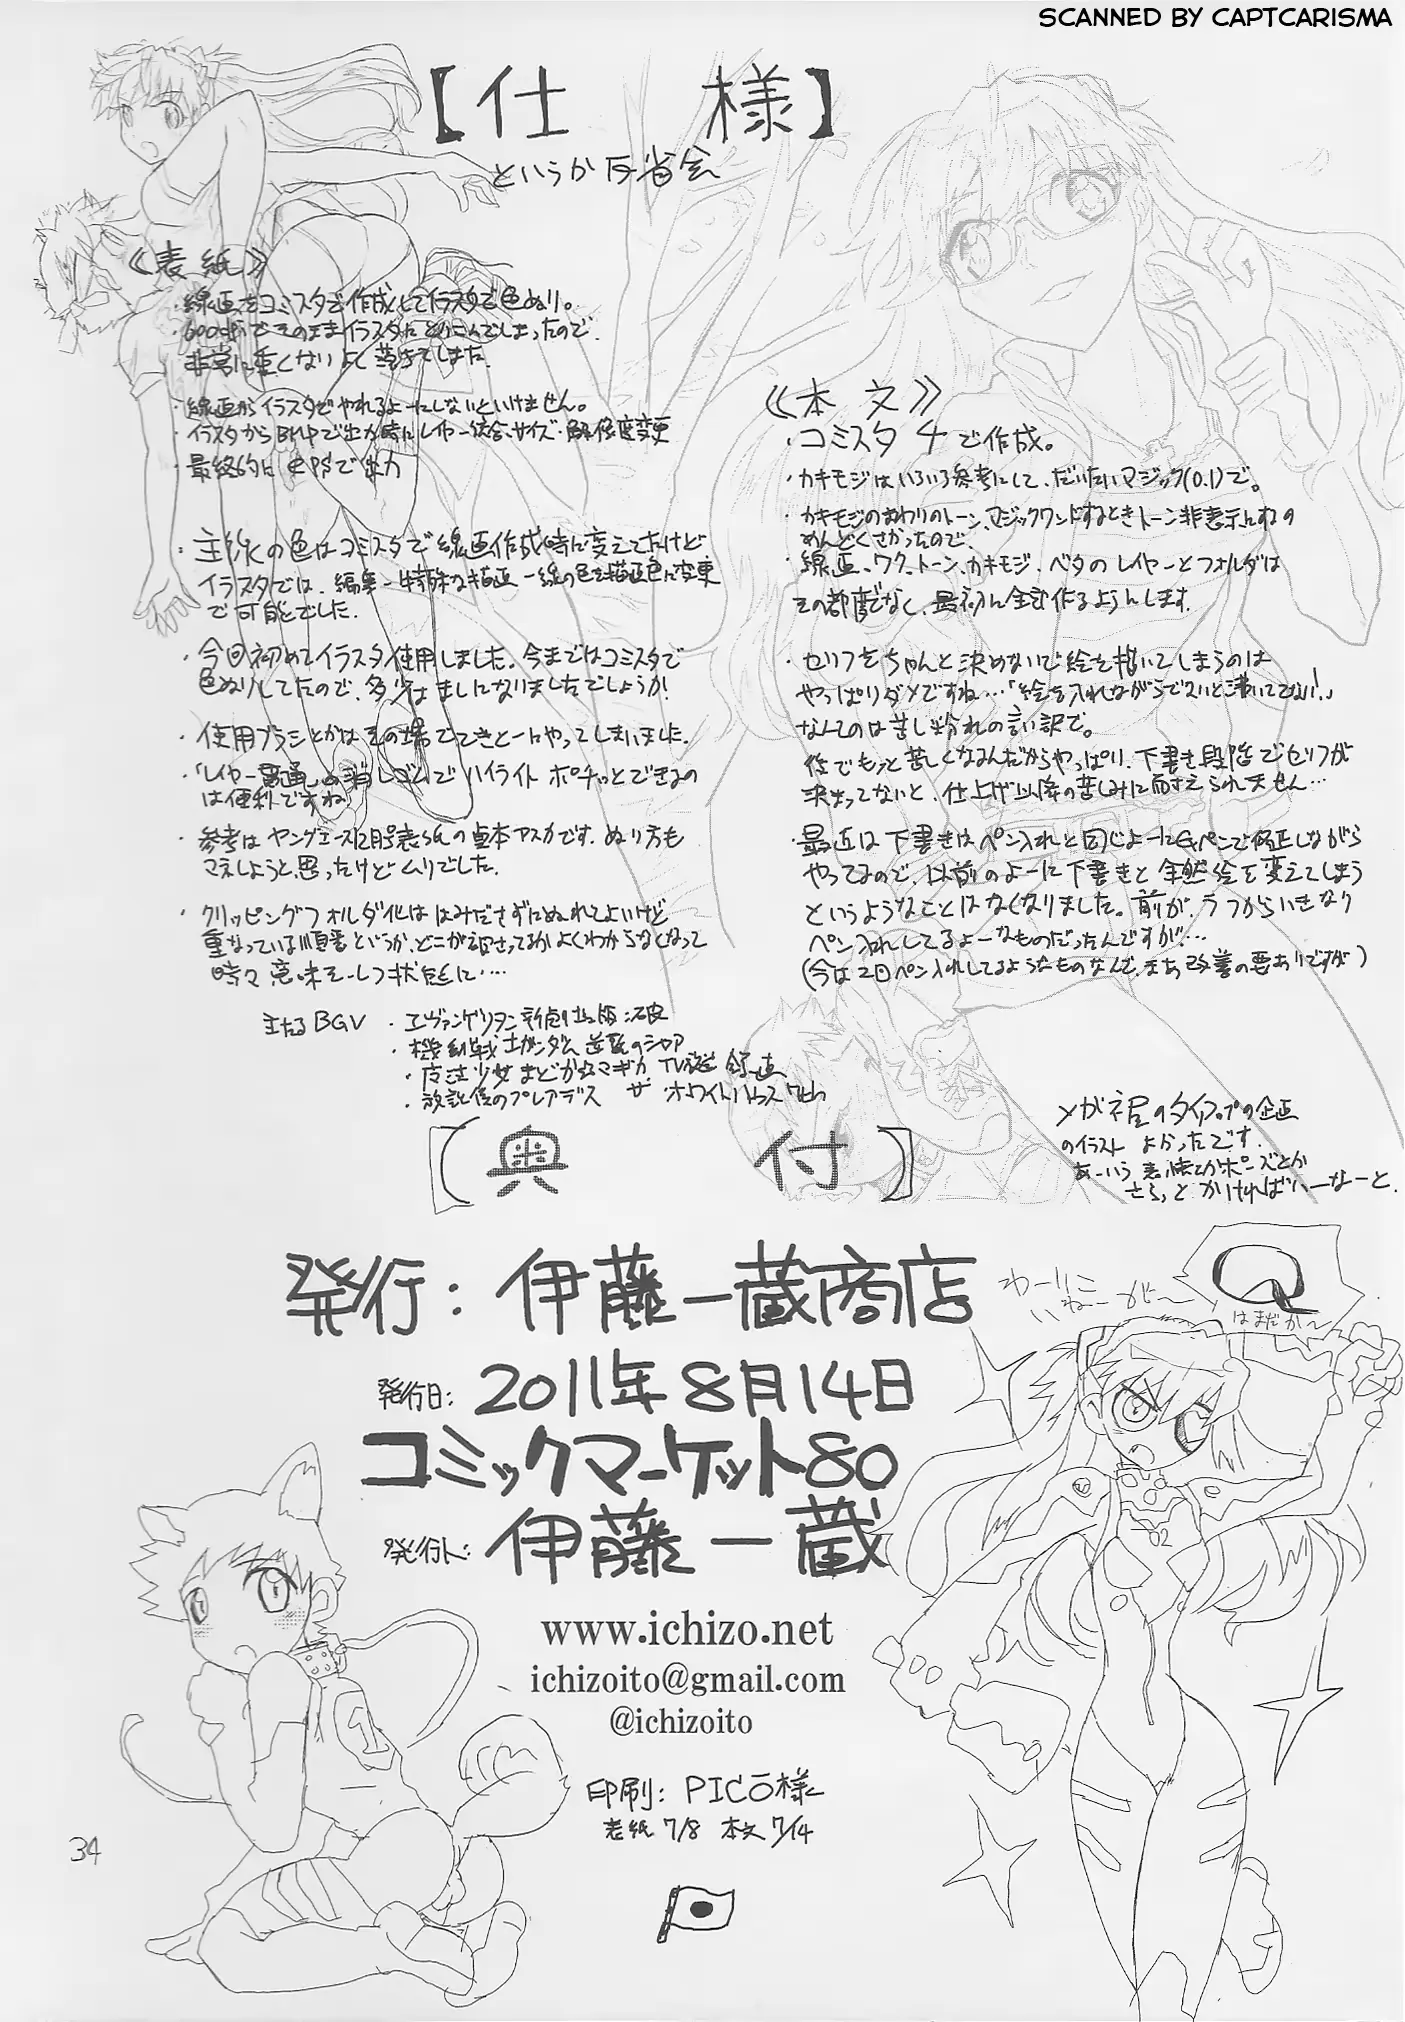 SCANNED BY CAPTCARISMA
【仕様】
というか反省会
《表紙》
・線画をコミスタで作成してイラスタで色ぬり。
・600dpiでそのままイラスタに
非常に重くなりよく落ちてました。
・線画からイラスタでやれるよーにしないといけません。
・イラスタからBMPで出す時にレイヤー統合、サイズ・解像度変更
・最終的にEPSで出力
・主線の色はコミスタで線画作成時に変えてたけど
イラスタでは、編集→特殊な描画→線の色を描画色に変更
で可能とでした。
・今回初めてイラスタ使用しました。今まではコミスタで
色ぬりしてたので、多少はましになりましたでしょうか!
・使用ブラシとかはその場でてきとーにやってしまいました。
・「レイヤー貫通」の消しゴムでハイライトポチっとできるの
は便利ですね
・参考はヤングエース12月号表紙の貞本アスカです。ぬり方も
マネしようと思ったけどムリでした。
・クリッピングフォルダ化ははみださずにぬれてよいけど
重なっている順番というか、どこが択さってるかよくわからなくなって
時々意味そーしつ状態に・・・・
主なるBGV ・エヴァンゲリヲン新劇場版:破
・機動戦士ガンダム 逆襲のシャア
・魔法少女まどか☆マギカ TV放送録画
・放課後のプレアデス ザ・ホワイトハウス
《本文》
・コミスタ4で作成。
・カキモジはいろいろ参考にして、だいたいマジック(0.1)で。
・カキモジのまわりのトーン、マジックワンドするときトーン非表示にするの
めんどくさかったので、
・線画、ワク、トーン、カキモジ、ベタのレイヤーとフォルダは
その都度でなく、最初に全部作るようにします。
・セリフをちゃんと決めないで絵を描いてしまうのは
やっぱりダメですね…「絵を入れながらでないと沸いてこない!」
なんてのは苦し紛れの言い訳で。
後でもっと苦しくなるんだからやっぱり、下書き段階でセリフが
決まってないと、仕上げ以降の苦しみに耐えられません…
・最近は下書きはペン入れと同じよーにGペンで修正しながら
やってるので、以前のよーに下書きと全然絵を変えてしまう
というようなことはなくなりました。前が、ラフからいきなり
ペン入れしてるよーなものだったんですが、…
(今は2回ペン入れしてるようなものなんで、まあ改善の要ありですが)
メガネ屋のタイアップの企画
のイラストよかったです。
あーいう表情とかポーズとか
さらっとかければいーなーと。
【奥付】
発行:伊藤一蔵商店
発行日:2011年8月14日
コミックマーケット80
発行人:伊藤一蔵
www.ichizo.net
ichizoito@gmail.com
@ichizoito
印刷:PICO様
表紙7/8 本文7/14
わーりこ
いねーがー
Q
はまだか〜
02
1
34